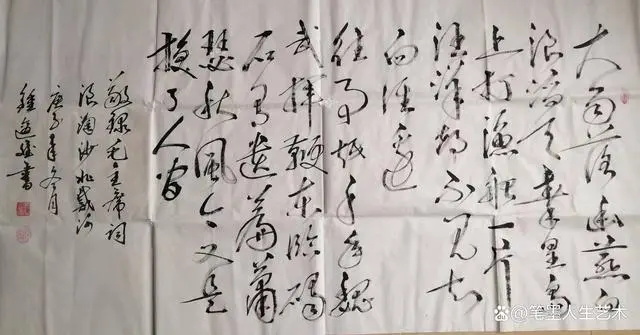 大雨落幽燕白
浪滔天秦皇島
外打漁船一片
汪洋都不見知
向誰邊
往事越千年魏
武揮鞭東臨碣
石有遺篇蕭
瑟秋風今又是
換了人间
敬録毛主席詞
浪淘沙北戴河
庚子年冬月
書
@笔墨人生艺术